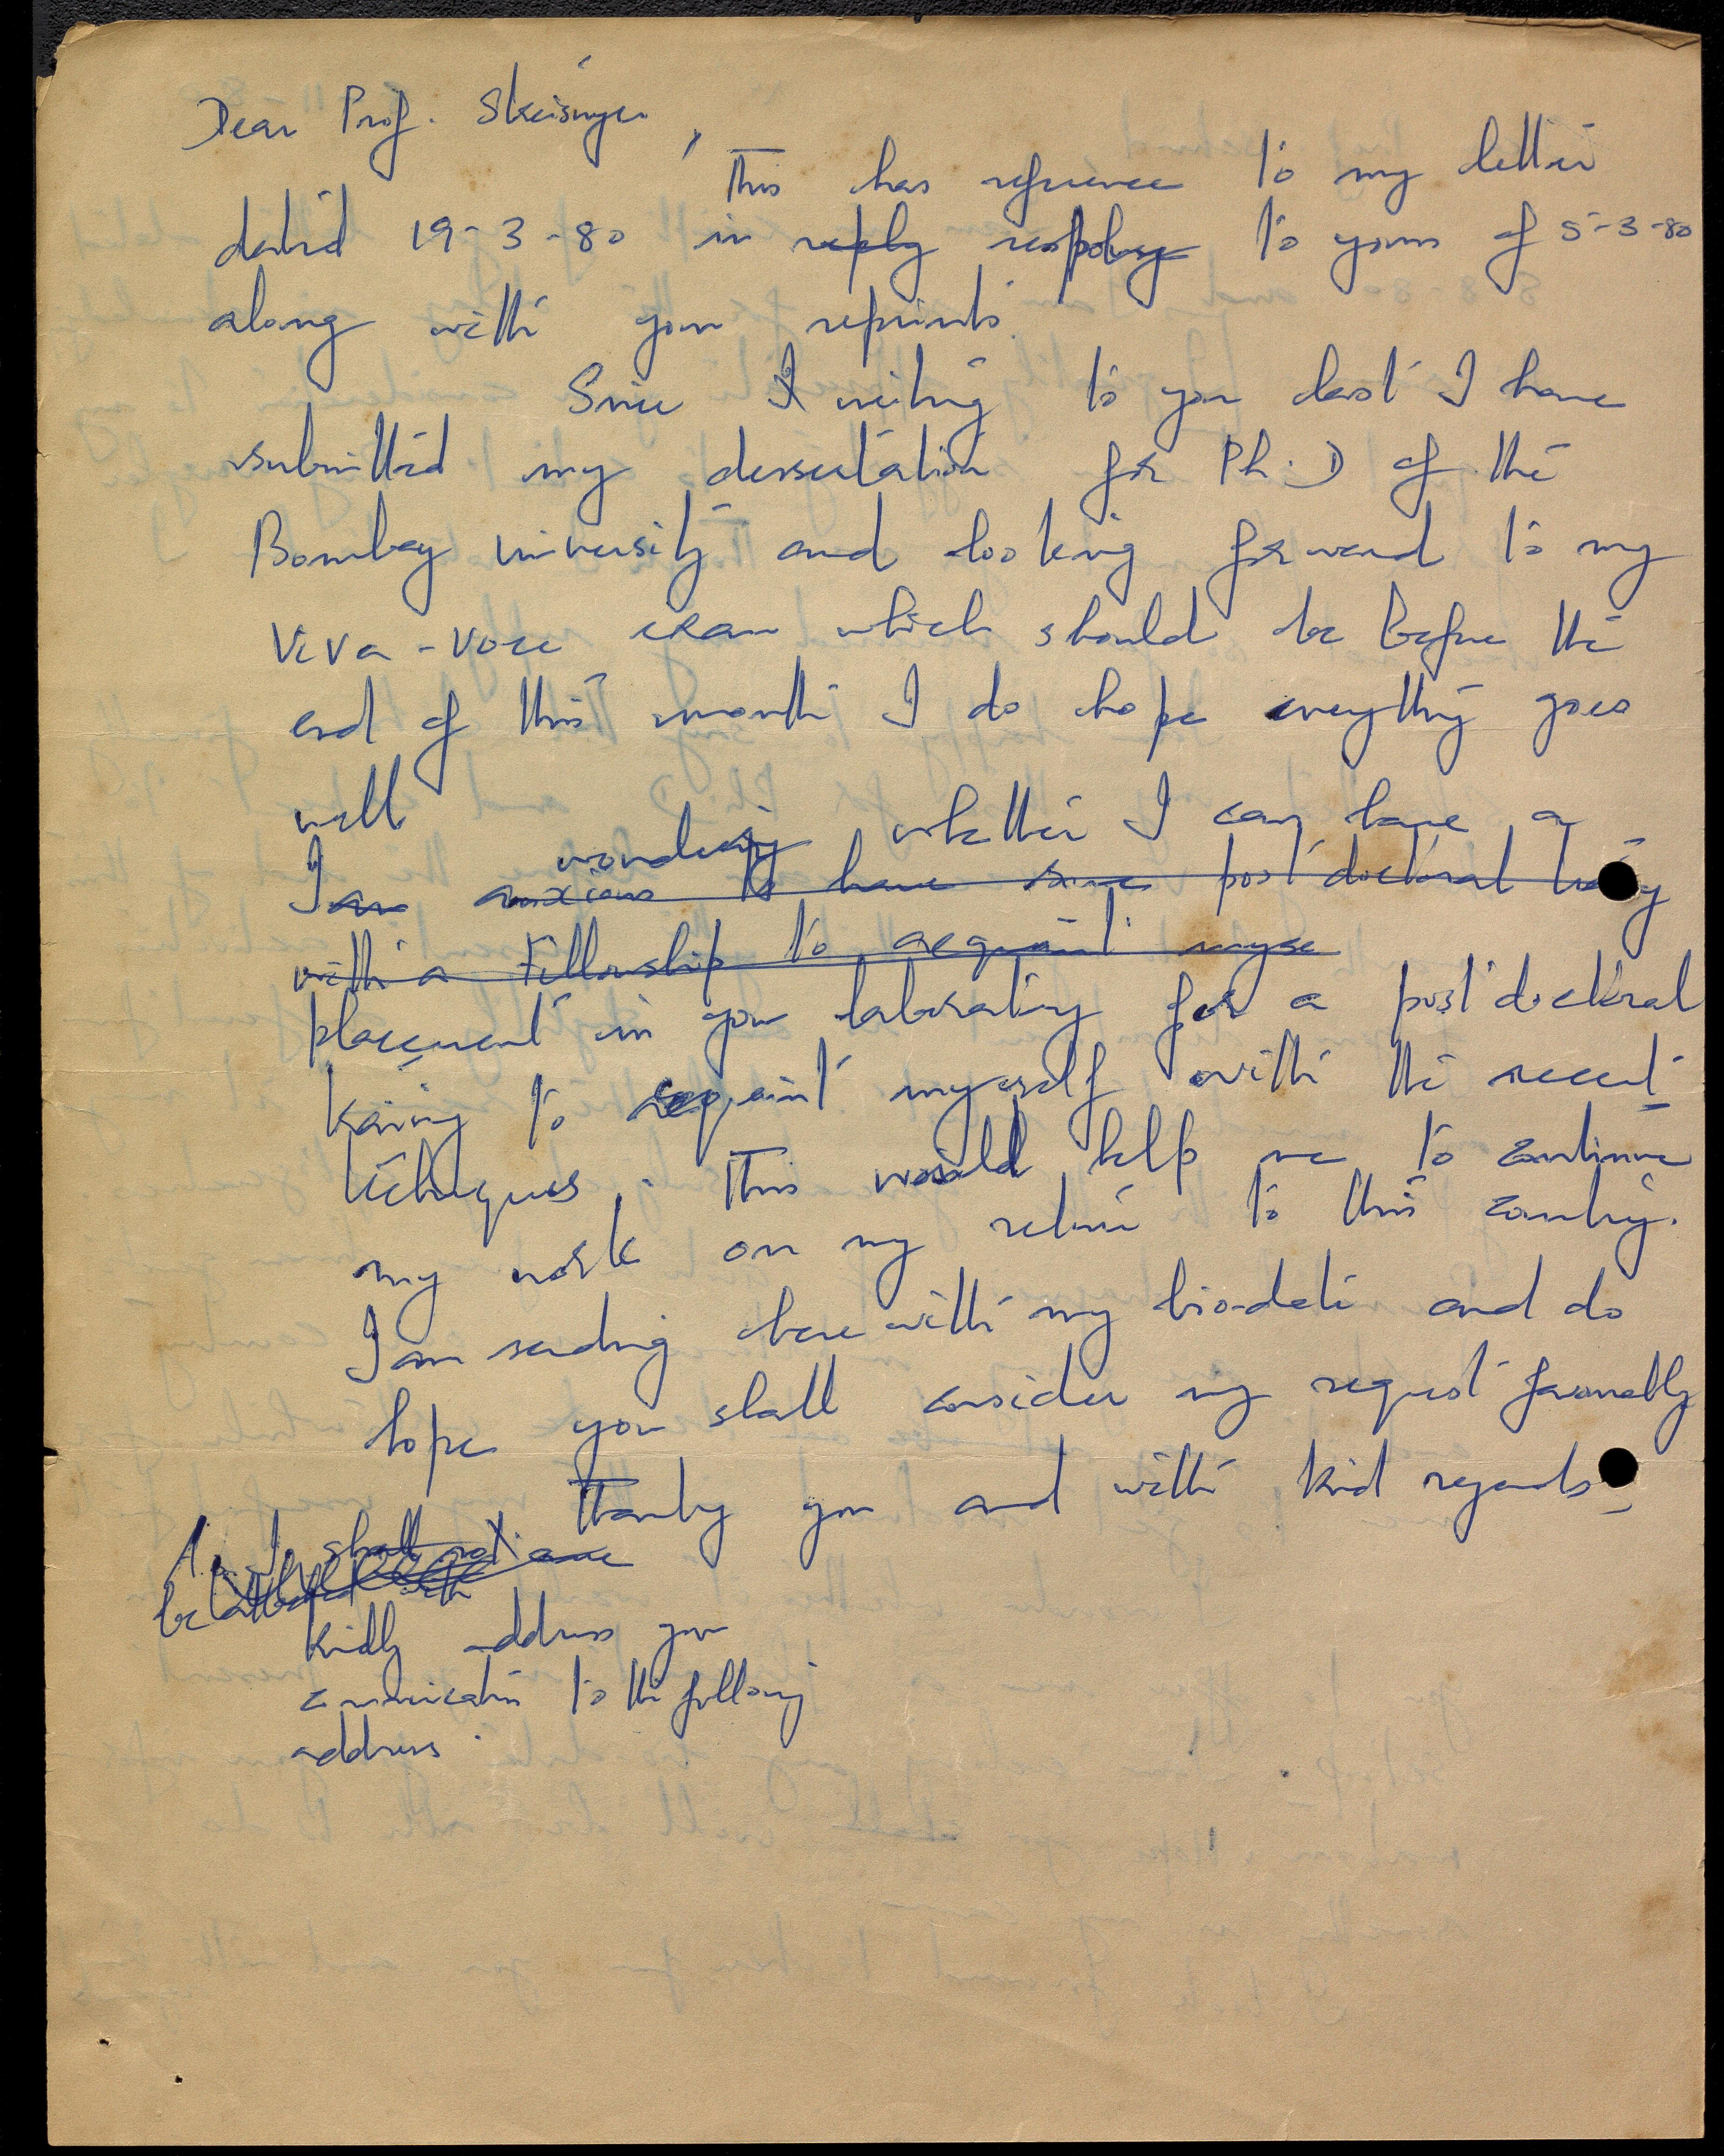 Dear Prof. Streisinger,
This has reference to my letter
dated 19-3-80 in reply to yours of 5-3-80
along with your reprints.
Since I writing to you last I have
submitted my dessertation for Ph.D of the
Bombay University and looking forward to my
Viva-voce exam which should be before the
end of this month I do hope everything goes
well
wondering whether I can have a
I am anxious to have some post doctoral
with a Fellowship to acquaint myse
placement in your laboratory for a post doctoral
to acquaint myself with the recent
techniques. This would help me to continue
my work on my return to this country.
I am sending here with my bio-data and do
hope you shall consider my request favourably
Thanking you and with kind regards
shall not
be attached with
Kindly address your
communication to the following
address.